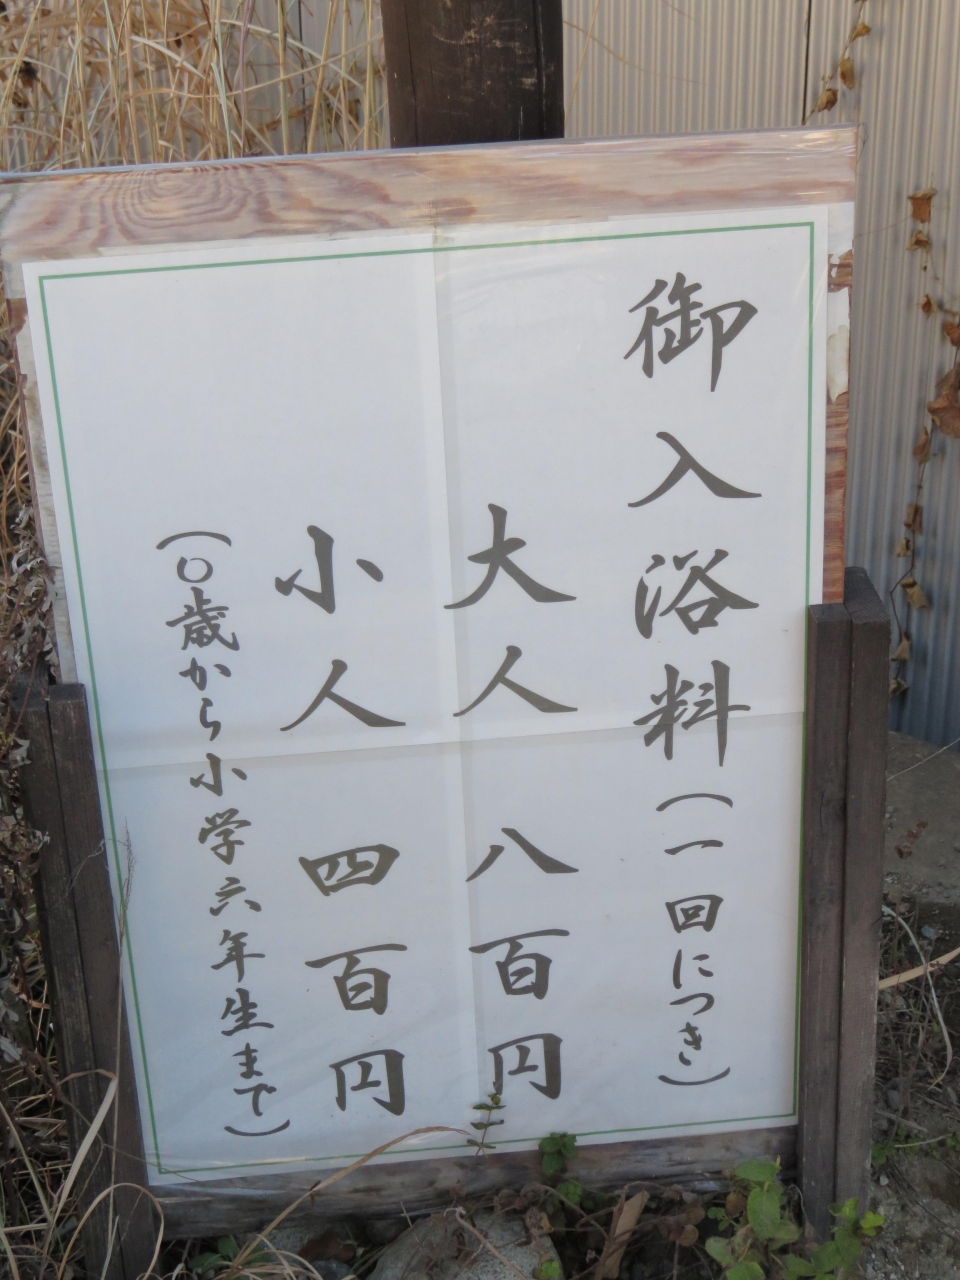 御入浴料(一回につき)
大人 八百円
小人 四百円
(〇歳から小学六年生まで)